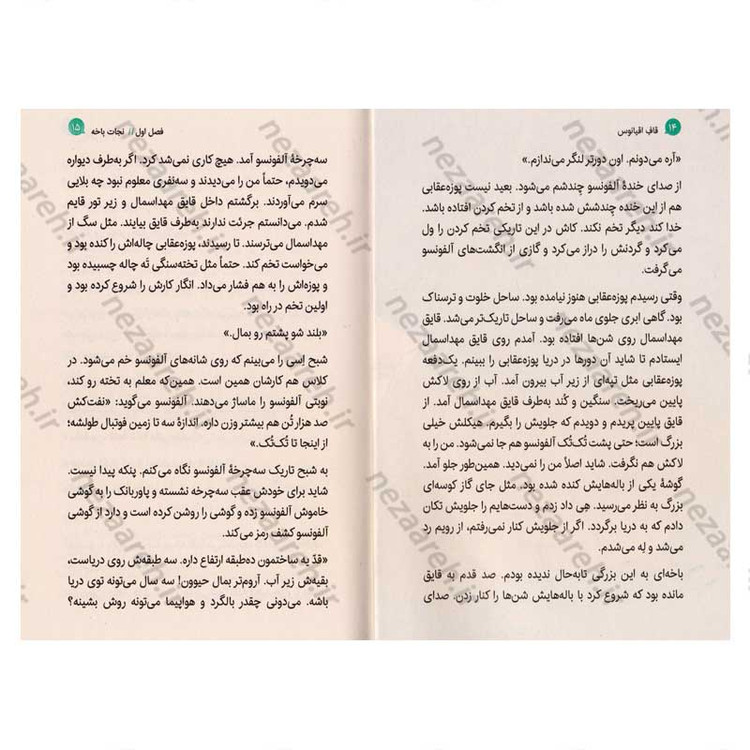 ۱۴ قاف اقیانوس
«آره می‌دونم. اون دورتر لنگر می‌ندازم.»
از صدای خندهٔ آلفونسو چندشم می‌شود. بعید نیست پوزه‌عقابی
هم از این خنده چندشش شده باشد و از تخم کردن افتاده باشد.
خدا کند دیگر تخم نکند. کاش در این تاریکی تخم کردن را ول
می‌کرد و گردنش را دراز می‌کرد و گازی از انگشت‌های آلفونسو
می‌گرفت.
وقتی رسیدم پوزه‌عقابی هنوز نیامده بود. ساحل خلوت و ترسناک
بود. گاهی ابری جلوی ماه می‌رفت و ساحل تاریک‌تر می‌شد. قایق
مهداسمال روی شن‌ها افتاده بود. آمدم روی قایق مهداسمال
ایستادم تا شاید آن دورها در دریا پوزه‌عقابی را ببینم. یک‌دفعه
پوزه‌عقابی مثل تپه‌ای از زیر آب بیرون آمد. آب از روی لاکش
پایین می‌ریخت. سنگین و کُند به‌طرف قایق مهداسمال آمد. از
قایق پایین پریدم و دویدم که جلویش را بگیرم. هیکلش خیلی
بزرگ است؛ حتی پشت تُک‌تُک آلفونسو هم جا نمی‌شود. من را به
لاکش هم نگرفت. شاید اصلاً من را نمی‌دید. همین‌طور جلو آمد.
گوشهٔ یکی از باله‌هایش کنده شده بود. مثل جای گاز کوسه‌ای
بزرگ به نظر می‌رسید. هِی داد زدم و دست‌هایم را جلویش تکان
دادم که به دریا برگردد. اگر از جلویش کنار نمی‌رفتم، از رویم رد
می‌شد و لِه می‌شدم.
باخه‌ای به این بزرگی تابه‌حال ندیده بودم. صد قدم به قایق
مانده بود که شروع کرد با باله‌هایش شن‌ها را کنار زدن. صدای
فصل اول // نجات باخه ۱۵
سه‌چرخهٔ آلفونسو آمد. هیچ کاری نمی‌شد کرد. اگر به‌طرف دیواره
می‌دویدم، حتماً من را می‌دیدند و سه‌نفری معلوم نبود چه بلایی
سرم می‌آوردند. برگشتم داخل قایق مهداسمال و زیر تور قایم
شدم. می‌دانستم جرئت ندارند به‌طرف قایق بیایند. مثل سگ از
مهداسمال می‌ترسند. تا رسیدند، پوزه‌عقابی چاله‌اش را کنده بود و
می‌خواست تخم کند. حتماً مثل تخته‌سنگی تَه چاله چسبیده بود
و پوزه‌اش را به هم فشار می‌داد. انگار کارش را شروع کرده بود و
اولین تخم در راه بود.
«بلند شو پشتم رو بمال.»
شبح اِسی را می‌بینم که روی شانه‌های آلفونسو خم می‌شود. در
کلاس هم کارشان همین است. همین‌که معلم به تخته رو کند،
نوبتی آلفونسو را ماساژ می‌دهند. آلفونسو می‌گوید: «نفت‌کش
صد هزار تُن هم بیشتر وزن داره. اندازهٔ سه تا زمین فوتبال طولشه؛
از اینجا تا تُک‌تُک.»
به شبح تاریک سه‌چرخهٔ آلفونسو نگاه می‌کنم. پنکه پیدا نیست.
شاید برای خودش عقب سه‌چرخه نشسته و پاوربانک را به گوشی
خاموش آلفونسو زده و گوشی را روشن کرده است و دارد از گوشی
آلفونسو کشف رمز می‌کند.
«قدّ یه ساختمون ده‌طبقه ارتفاع داره. سه طبقه‌ش روی دریاست،
بقیه‌ش زیر آب. آروم‌تر بمال حیوون! سه سال می‌تونه توی دریا
باشه. می‌دونی چقدر بالگرد و هواپیما می‌تونه روش بشینه؟
nezaareh.ir